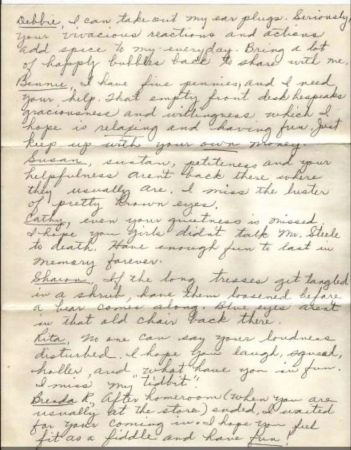 Debbie, I can take out my ear plugs. Seriously,
your vivacious reactions and actions
add spice to my everyday. Bring a lot
of happy bubbles back to share with me.
Bennie, I have five pennies, and I need
your help. That empty front desk bespeaks
graciousness and willingness which I
hope is relaxing and having fun. Just
keep up with your own money.
Susan, sustan, petiteness and your
helpfulness aren't back there where
they usually are. I miss the luster
of pretty brown eyes.
Cathy, even your quietness is missed.
I hope you girls didn't talk Mr. Steele
to death. Have enough fun to last in
memory forever.
Sharon, If the long tresses get tangled
in a shrub, have them loosened before
a bear comes along. Blue eyes aren't
in that old chair back there.
Rita, no one can say your loudness
disturbed. I hope you laugh, squeal,
holler, and "what have you in fun.
I miss my "tidbit".
Brenda R, After homeroom (when you are
usually at the store) ended, I waited
for your coming in. I hope you feel
fit as a fiddle and have fun!